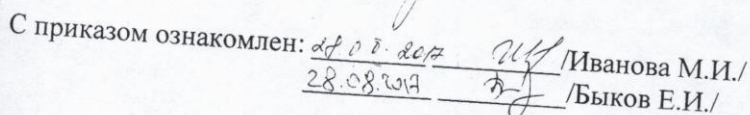 С приказом ознакомлен: 28.08.2017 /Иванова М.И./
28.08.2017 /Быков Е.И./